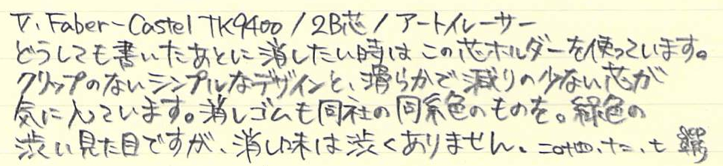 V. Faber-Castel TK9400 / 2B芯 / アートイレーサー
どうしても書いたあとに消したい時はこの芯ホルダーを使っています。
クリップのないシンプルなデザインと、滑らかで減りの少ない芯が
気に入っています。消しゴムも同社の同系色のものを。緑色の
渋い見た目ですが、消し味は渋くありません。二〇十四、十二、七